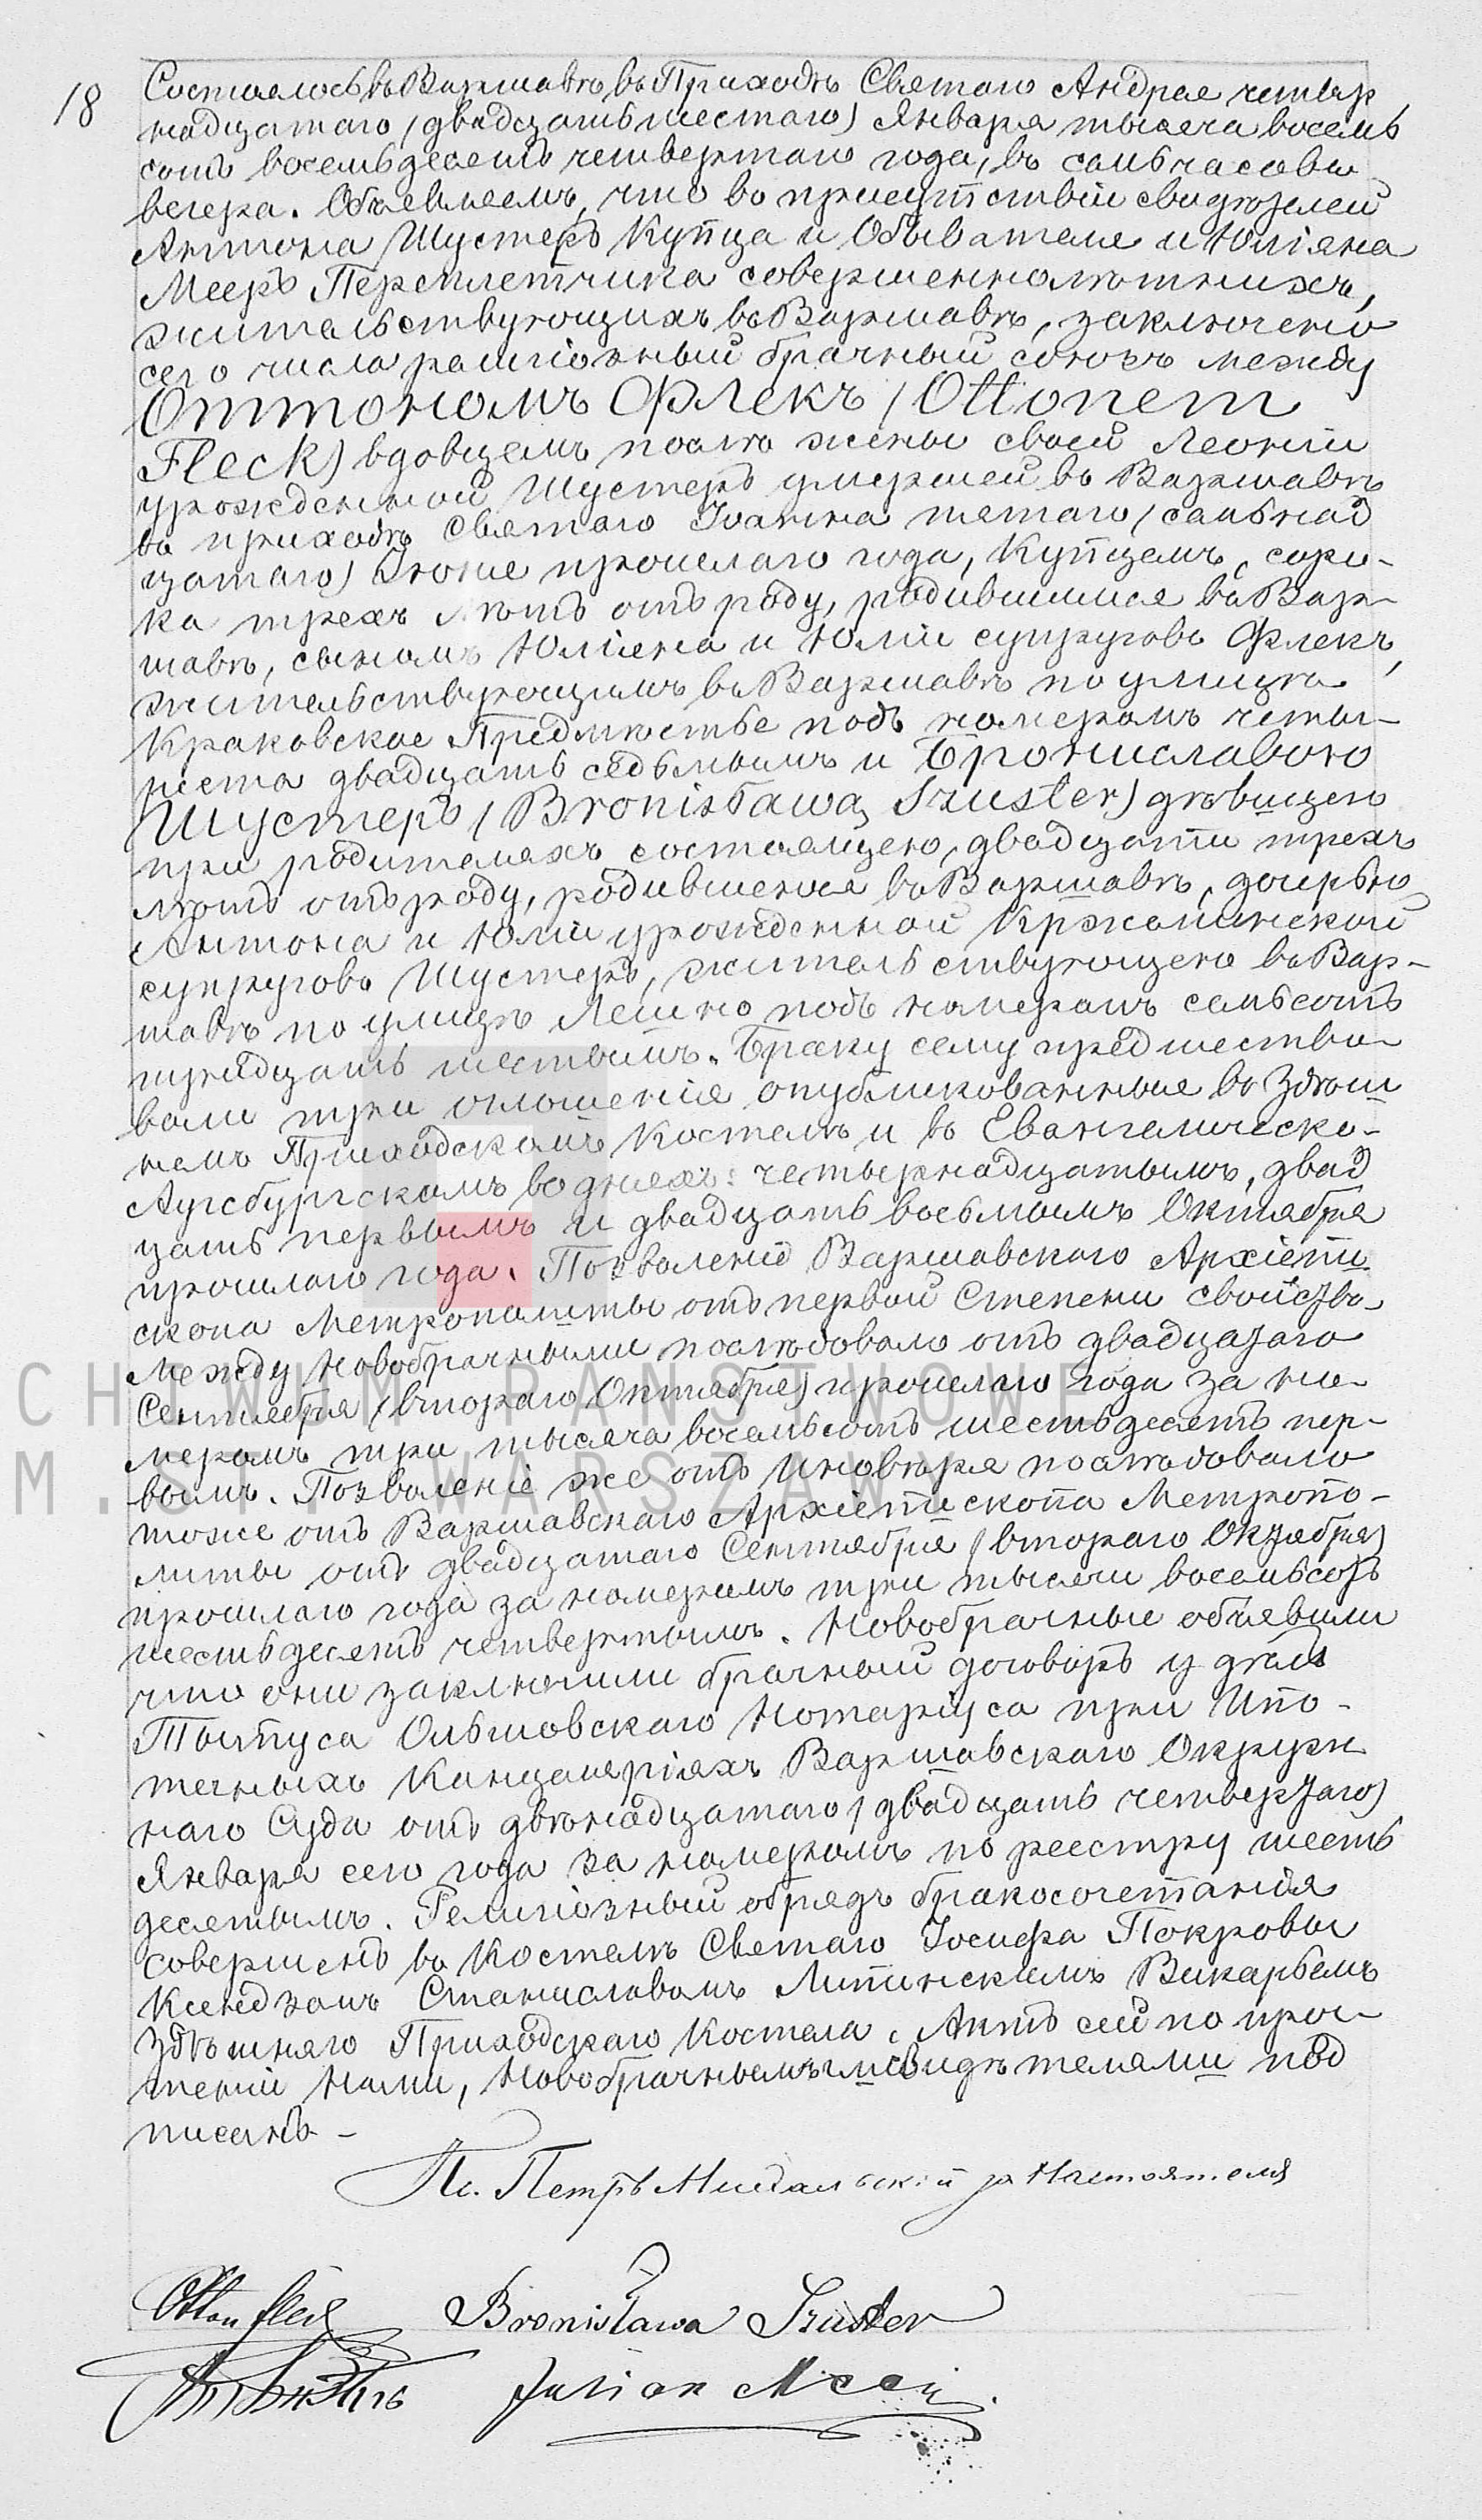 18
Состоялось въ Варшавѣ въ Приходѣ Святаго Андрея четыр
надцатаго (двадцать шестаго) Января тысяча восемь
сотъ восемьдесятъ четвертаго года, въ семь часовъ
вечера. Объявляемъ, что въ присутствіи свидѣтелей
Антона Шустеръ Купца и Обывателя и Юліяна
Мееръ Переплетчика совершеннолѣтнихъ,
жительствующихъ въ Варшавѣ, заключенъ
сего числа религіозный брачный союзъ между
Оттономъ Флекъ (Ottonem
Fleck) вдовцемъ послѣ жены своей Леоніи
урожденной Шустеръ умершей въ Варшавѣ
въ приходѣ Святаго Іоанна пятаго (семьнад
цатаго) Іюня прошлаго года, Купцемъ, соро-
ка трехъ лѣтъ отъ роду, родившимся въ Вар-
шавѣ, сыномъ Юліяна и Юліи супруговъ Флекъ,
жительствующимъ въ Варшавѣ по улицѣ
Краковское Предмѣстье подъ номеромъ четы-
реста двадцать седьмымъ и Брониславою
Шустеръ (Bronisława Szuster) дѣвицею
при родителяхъ состоящею, двадцати трехъ
лѣтъ отъ роду, родившеюся въ Варшавѣ, дочерью
Антона и Юліи урожденной Кржеминской
супруговъ Шустеръ, жительствующею въ Вар-
шавѣ по улицѣ Лешно подъ номеромъ семьсотъ
тридцать шестымъ. Браку сему предшество-
вали три оглашенія опубликованныя въ Здѣш
немъ Приходскомъ Костелѣ и въ Евангелическо-
Аугсбургскомъ въ дняхъ: четырнадцатымъ, двад
цать первымъ и двадцать восьмымъ Октября
прошлаго года. Позволеніе Варшавскаго Архіепи
скопа Метрополиты отъ первой Степени свойства
Между Новобрачными послѣдовало отъ двадцатаго
Сентября (втораго Октября) прошлаго года за но-
меромъ три тысяча восемьсотъ шестьдесятъ пер-
вымъ. Позволеніе же отъ иновѣрія послѣдовало
тоже отъ Варшавскаго Архіепископа Метропо-
литы отъ двадцатаго Сентября (втораго Октября)
прошлаго года за номеромъ три тысячи восемьсотъ
шестьдесятъ четвертымъ. Новобрачные объявили
что они заключили брачный договоръ у дѣлъ
Тытуса Ольшовскаго Нотаріуса при Ипо-
течныхъ Канцеляріяхъ Варшавскаго Окруж
наго Суда отъ двѣнадцатаго (двадцать четвертаго)
Января сего года за номеромъ по реестру шесть
десятымъ. Религіозный обрядъ бракосочетанія
совершенъ въ Костелѣ Святаго Іосифа Покровы
Ксендзомъ Станиславомъ Липинскимъ Викарьемъ
Здѣшняго Приходскаго Костела. Актъ сей по проч-
теніи Нами, Новобрачнымъ и свидѣтелями под
писанъ -
Кс. Петръ за Настоятеля
Otton Fleck Bronisława Szuster
Julian Meer
ARCHIWUM PAŃSTWOWE
M.ST. WARSZAWY